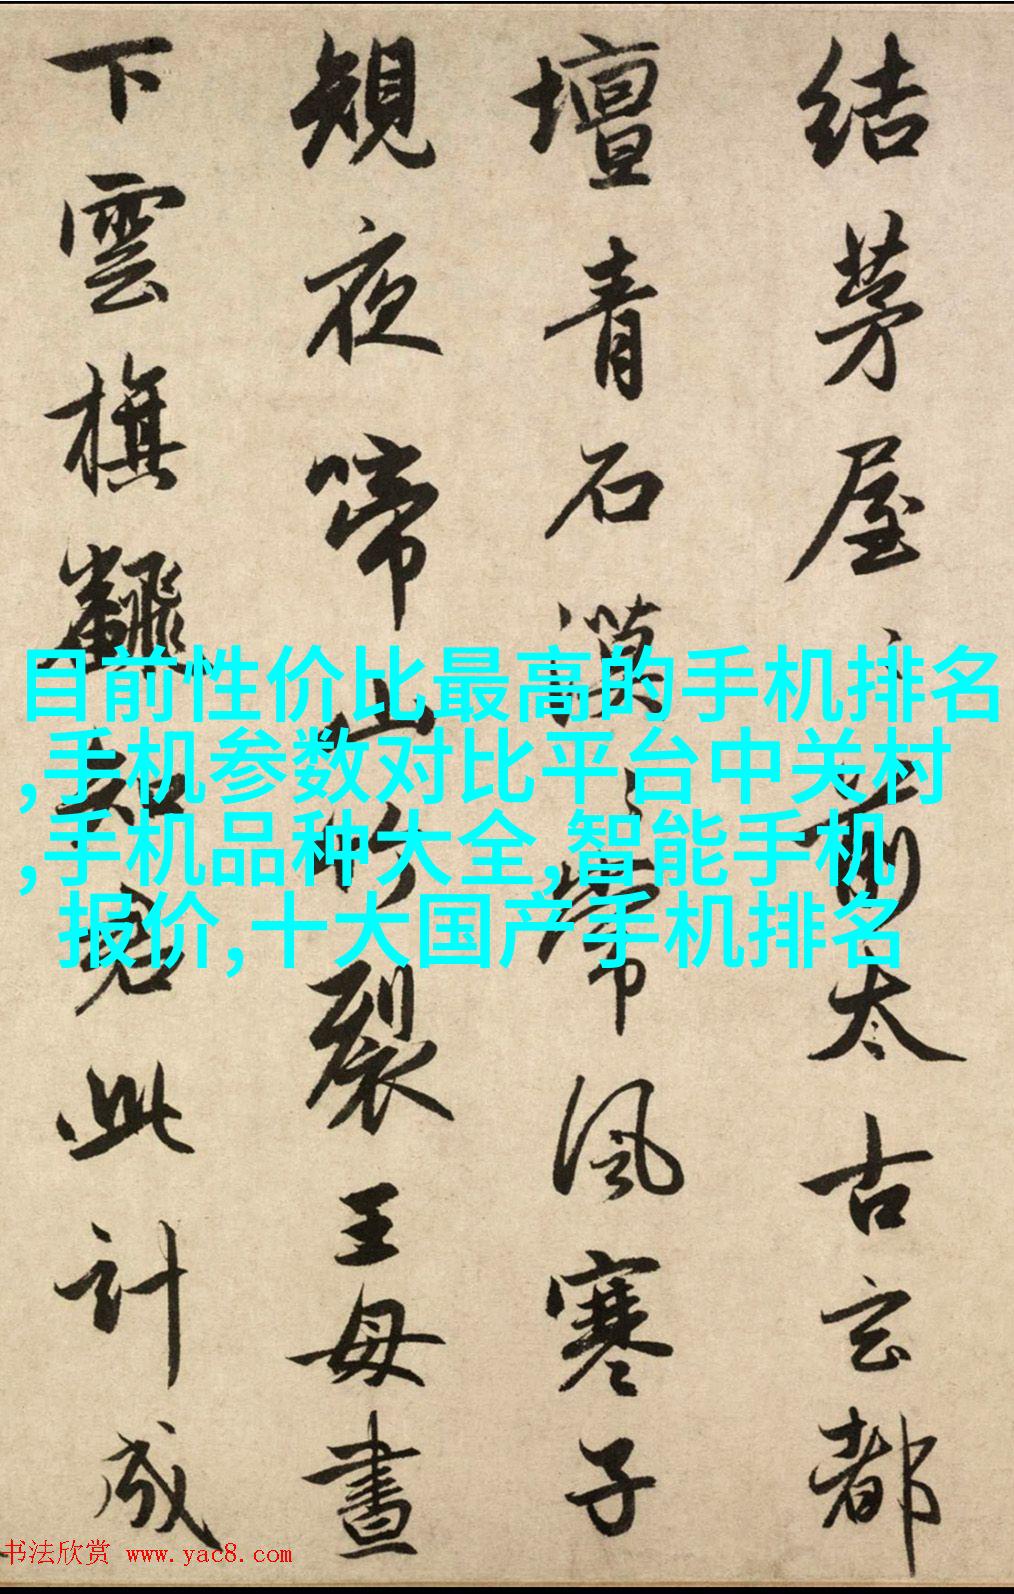 結茅屋々前太古玄都
壇青石漠々常風寒子
規夜啼山竹裂王母晝
下雲旗飜知君此計成
目前性价比最高的手机排名
,手机参数对比平台中关村
,手机品种大全,智能手机
报价,十大国产手机排名
书法欣赏 www.yac8.com